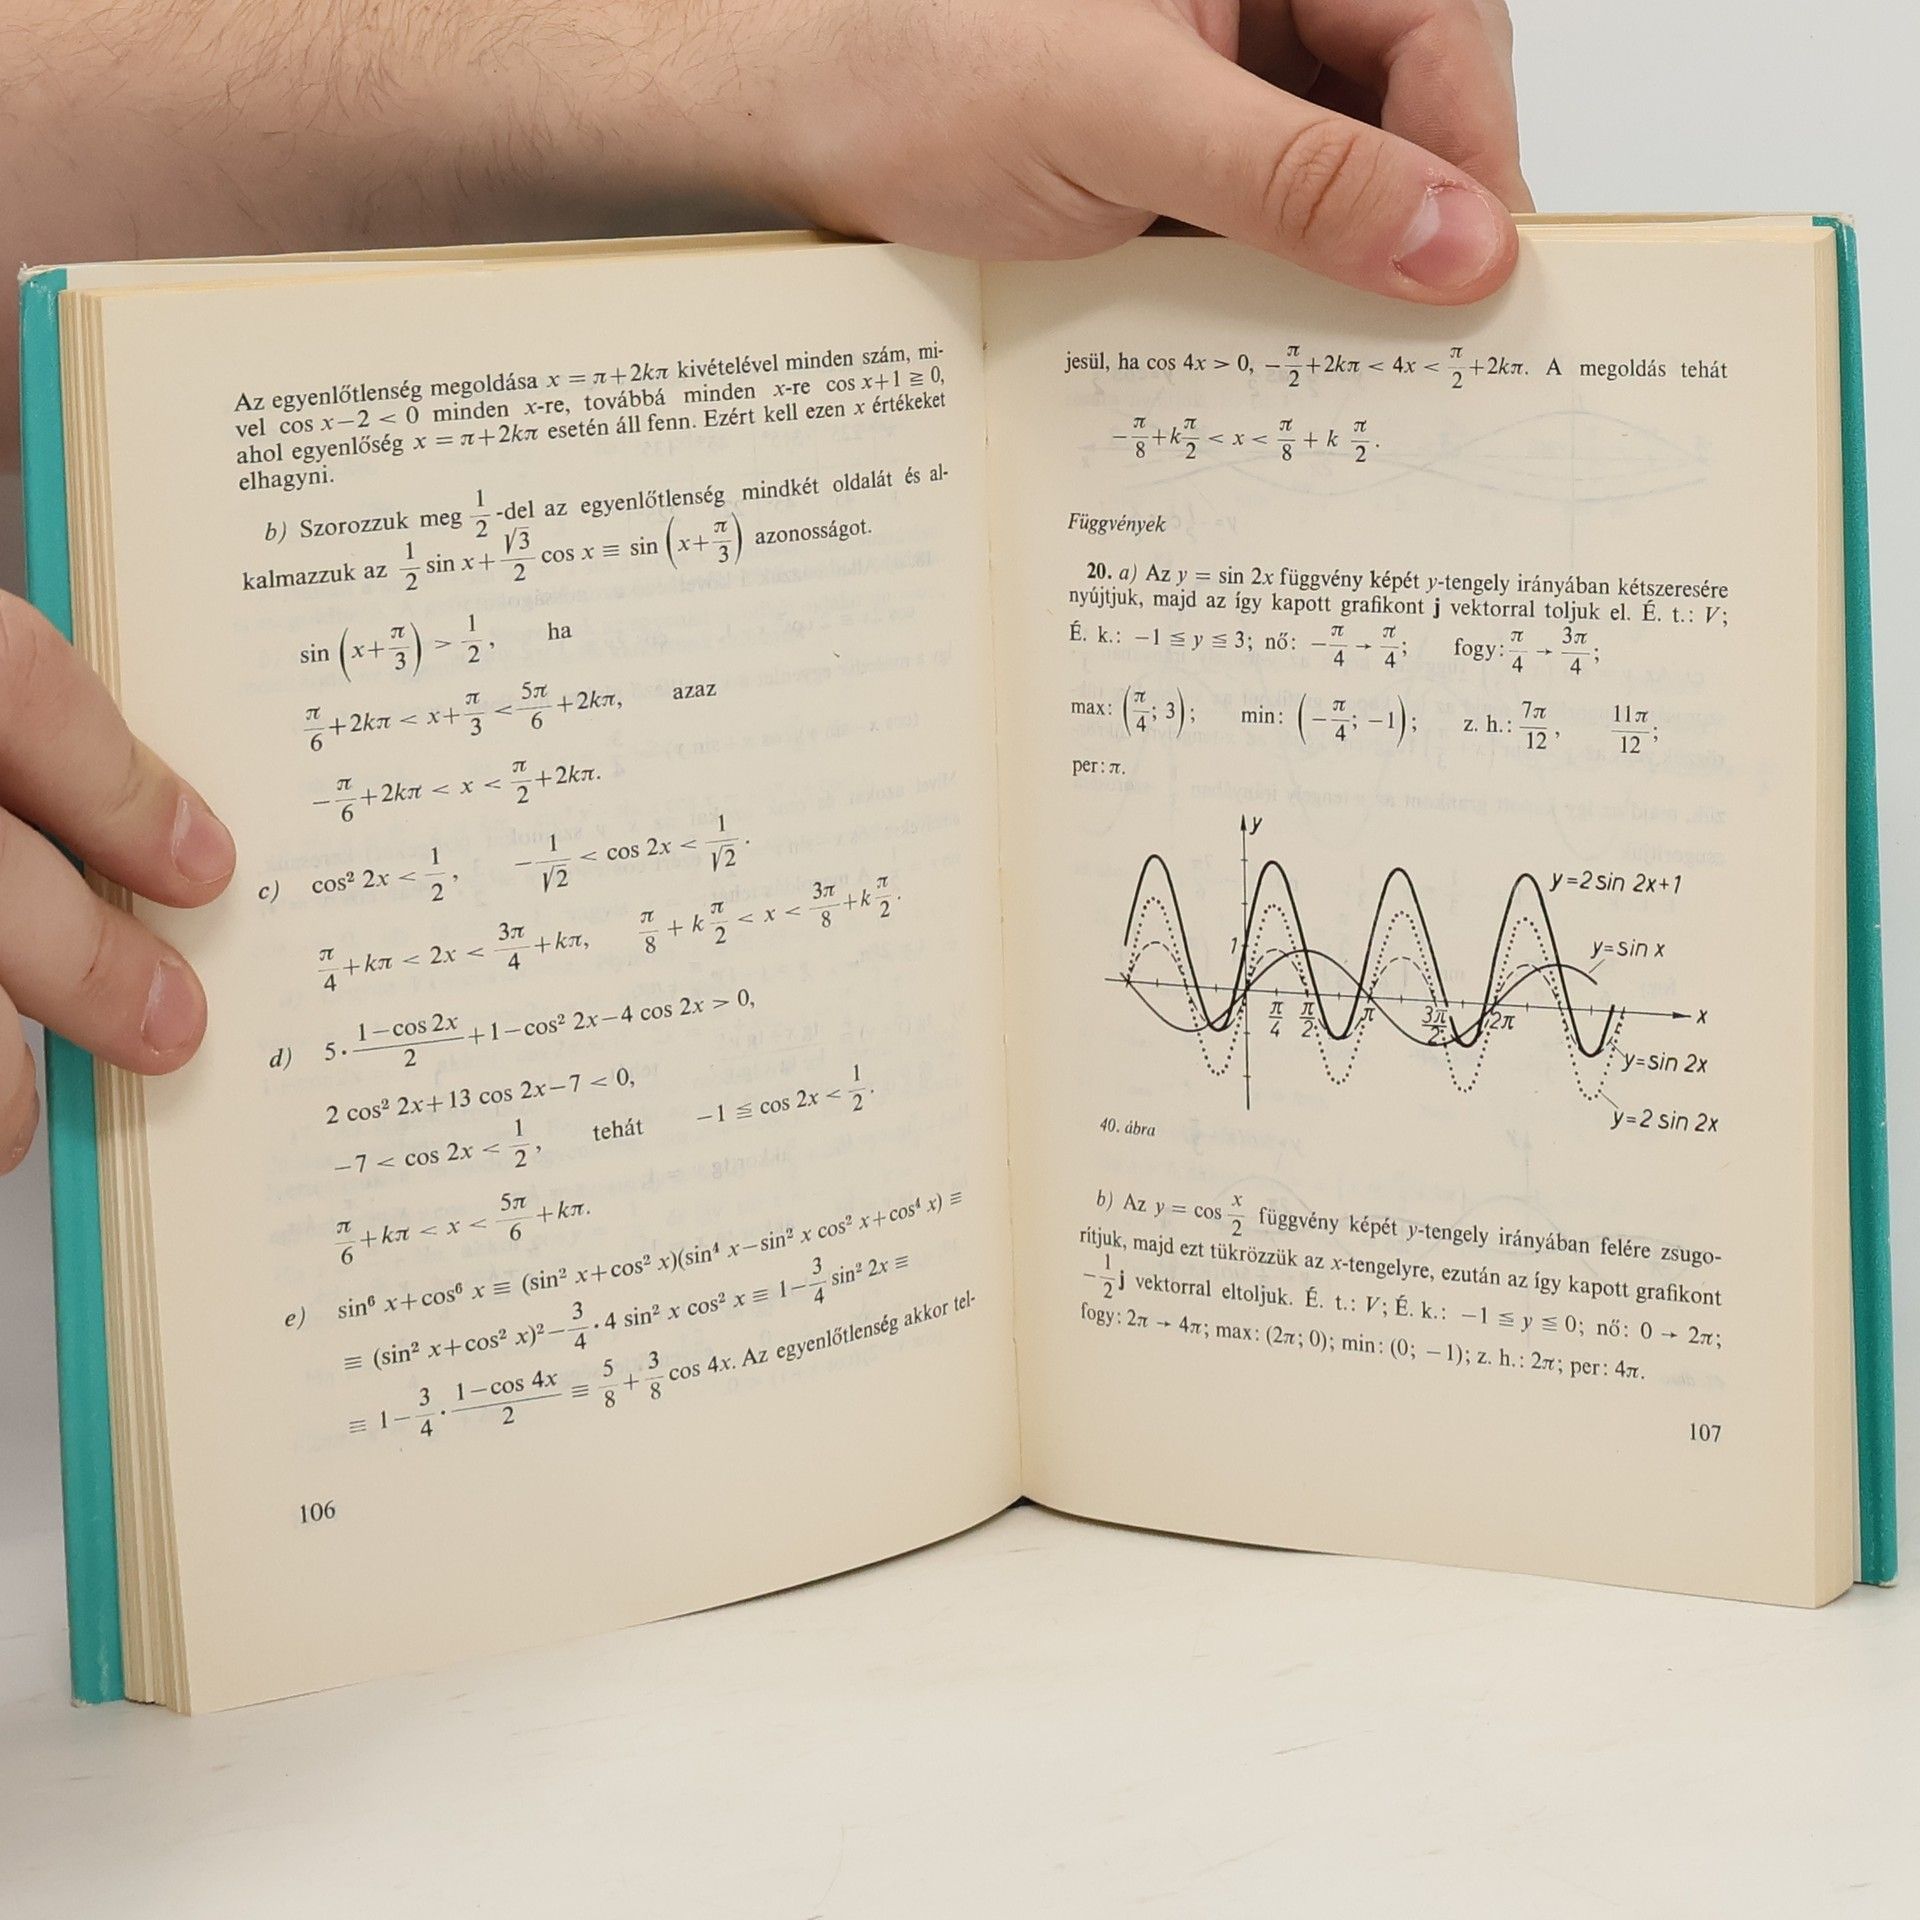 Az egyenlőtlenség megoldása x = π+2kπ kivételével minden szám, mi-
vel cos x−2 < 0 minden x-re, továbbá minden x-re cos x+1 ≧ 0,
ahol egyenlőség x = π+2kπ esetén áll fenn. Ezért kell ezen x értékeket
elhagyni.
b) Szorozzuk meg 1/2 -del az egyenlőtlenség mindkét oldalát és al-
kalmazzuk az 1/2 sin x + √3/2 cos x ≡ sin (x+π/3) azonosságot.
sin (x+π/3) > 1/2, ha
π/6+2kπ < x+π/3 < 5π/6+2kπ, azaz
−π/6+2kπ < x < π/2+2kπ.
c) cos² 2x < 1/2, −1/√2 < cos 2x < 1/√2.
π/4+kπ < 2x < 3π/4+kπ, π/8 + k π/2 < x < 3π/8+k π/2.
d) 5·(1−cos 2x)/2+1−cos² 2x−4 cos 2x > 0,
2 cos² 2x+13 cos 2x−7 < 0,
−7 < cos 2x < 1/2, tehát −1 ≦ cos 2x < 1/2.
π/6+kπ < x < 5π/6+kπ.
e) sin⁶ x+cos⁶ x ≡ (sin² x+cos² x)(sin⁴ x−sin² x cos² x+cos⁴ x) ≡
≡ (sin² x+cos² x)²−3/4·4 sin² x cos² x ≡ 1−3/4 sin² 2x ≡
≡ 1−3/4·(1−cos 4x)/2 ≡ 5/8+3/8 cos 4x. Az egyenlőtlenség akkor tel-
106
jesül, ha cos 4x > 0, −π/2+2kπ < 4x < π/2+2kπ. A megoldás tehát
−π/8+k π/2 < x < π/8 + k π/2.
Függvények
20. a) Az y = sin 2x függvény képét y-tengely irányában kétszeresére
nyújtjuk, majd az így kapott grafikont j vektorral toljuk el. É. t.: V;
É. k.: −1 ≦ y ≦ 3; nő: −π/4 → π/4; fogy: π/4 → 3π/4;
max: (π/4; 3); min: (−π/4; −1); z. h.: 7π/12, 11π/12;
per: π.
y
y=2 sin 2x+1
y=sin x
1
π/4 π/2 π 3π/2 2π x
y=sin 2x
y=2 sin 2x
40. ábra
b) Az y = cos x/2 függvény képét y-tengely irányában felére zsugo-
rítjuk, majd ezt tükrözzük az x-tengelyre, ezután az így kapott grafikont
−1/2 j vektorral eltoljuk. É. t.: V; É. k.: −1 ≦ y ≦ 0; nő: 0 → 2π;
fogy: 2π → 4π; max: (2π; 0); min: (0; −1); z. h.: 2π; per: 4π.
107